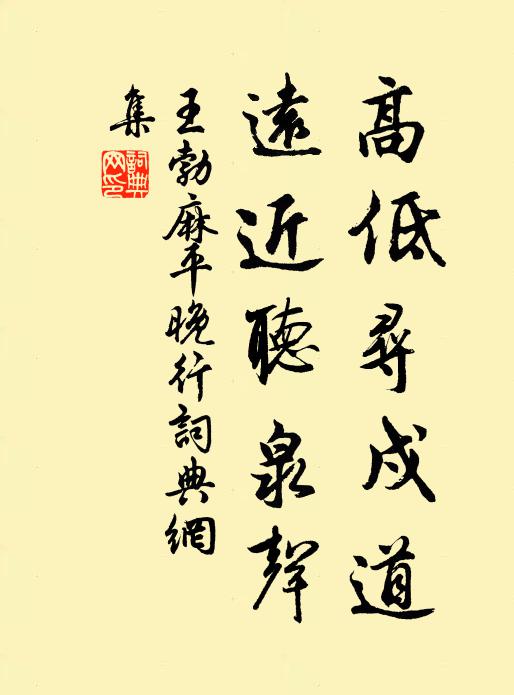 高低尋戍道
遠近聽泉聲
王勃麻平晚行詞典網
集
詞典
网印